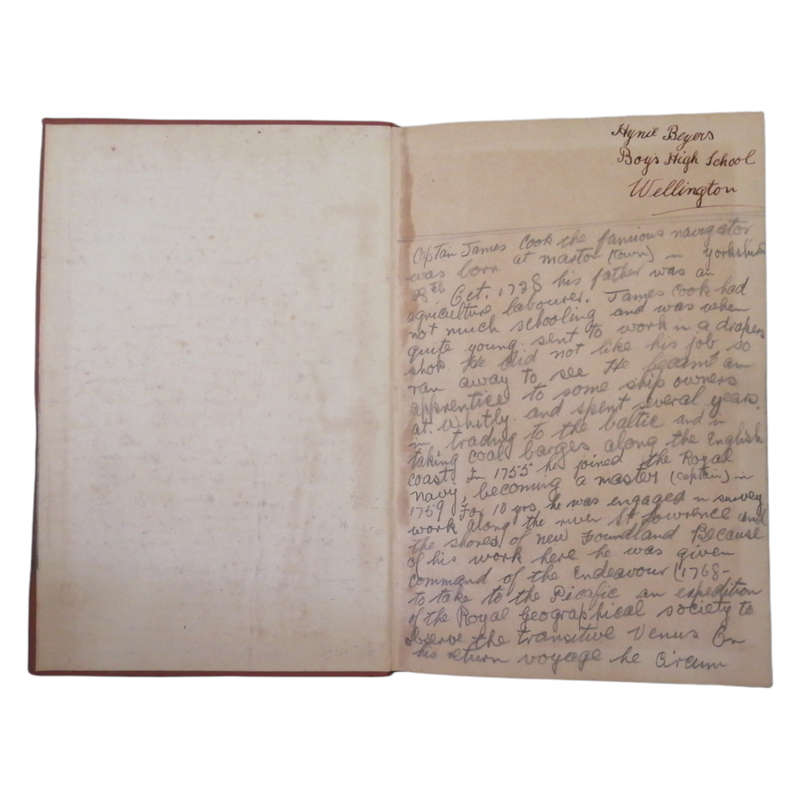 Hynie Beyers
Boys High School
Wellington
Captain James Cook the famious navigator
was born at maston (town) in yorkshire
28th Oct. 1728 his father was an
agriculture labourer. James Cook had
not much schooling and was when
quite young sent to work in a drapers
shop He did not like his job so
ran away to see He became an
apprentice to some ship owners
at Whitly. and spent several years.
in trading to the baltic and in
taking coal barges along the English
coast. In 1755 he joined the Royal
navy, becoming a master (captain) in
1759 For 10 yrs, he was engaged in survey
work along the river St Lowrence and
the shores of new Foundland Because
of his work here he was given
Command of the Endeavour (1768-
to take to the Picafic an expedition
of the Royal Geographical society to
observe the transitive Venus On
his return voyage he Circum